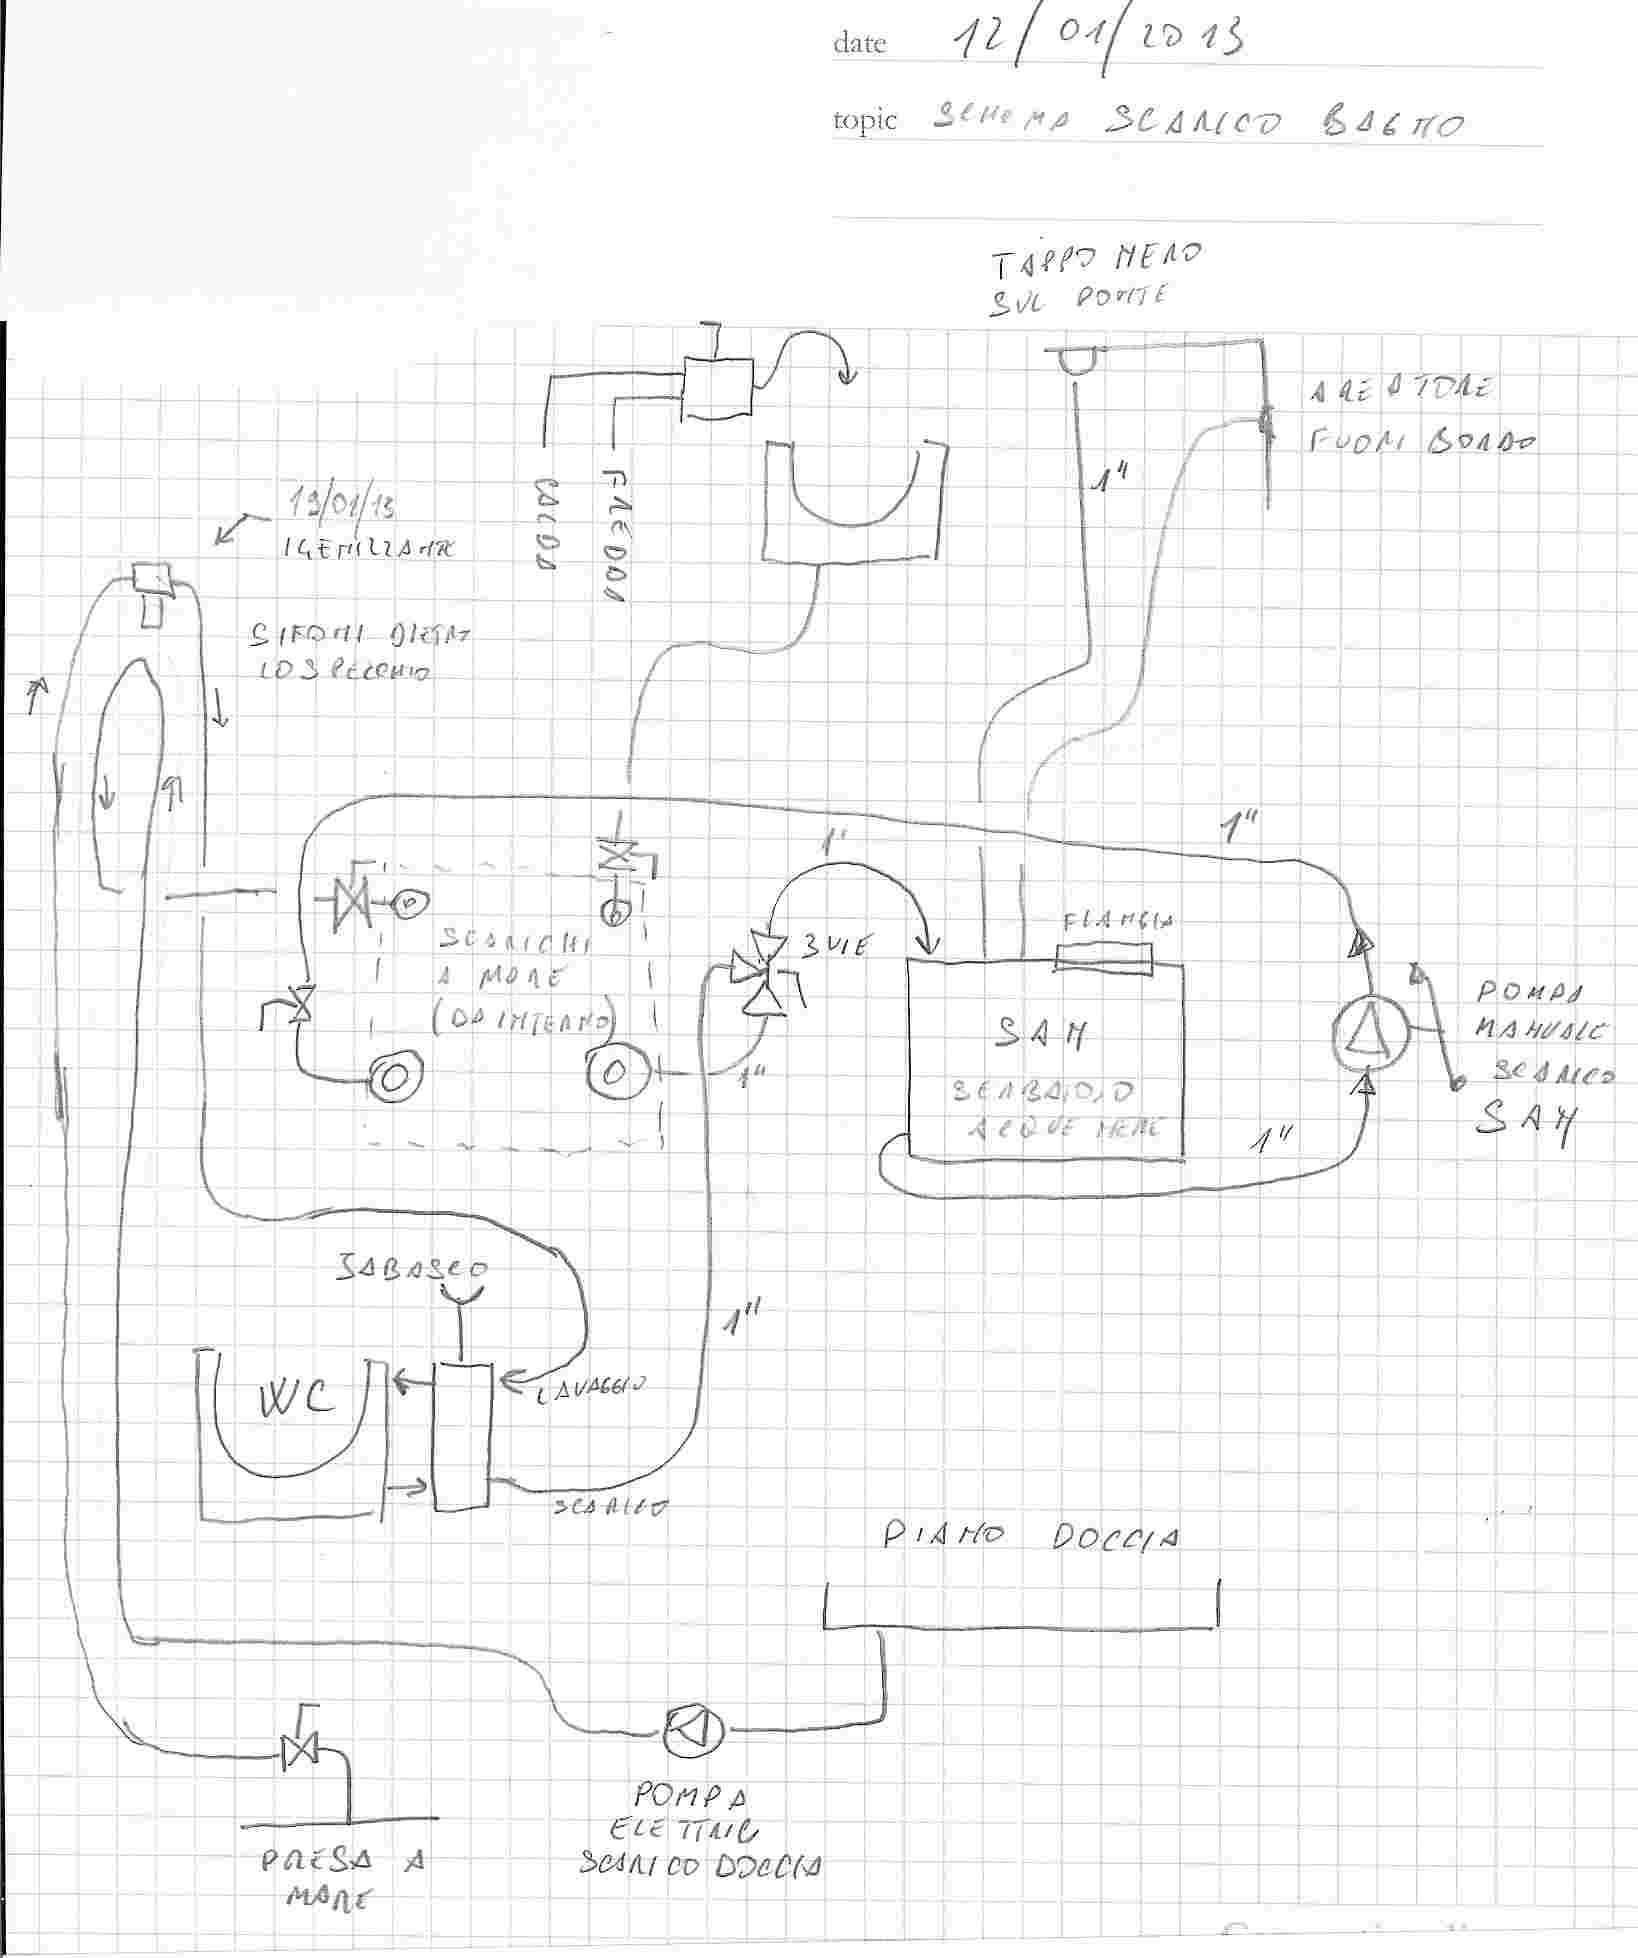 date 12/01/2013
topic SCHEMA SCARICO BAGNO
TAPPO NERO
SUL PONTE
AREATORE
FUORI BORDO
1"
CALDO
FREDDO
13/01/13
IGENIZZANTE
SIFONI DIETRO
LO SPECCHIO
1"
1"
3 VIE
FLANGIA
SCARICHI
A MARE
(DA INTERNO)
1"
SAN
SERBATOIO
ACQUE NERE
POMPA
MANUALE
SCARICO
SAN
1"
JABASCO
1"
WC
LAVAGGIO
SCARICO
PIANO DOCCIA
POMPA
ELETTRIC
SCARICO DOCCIA
PRESA A
MARE